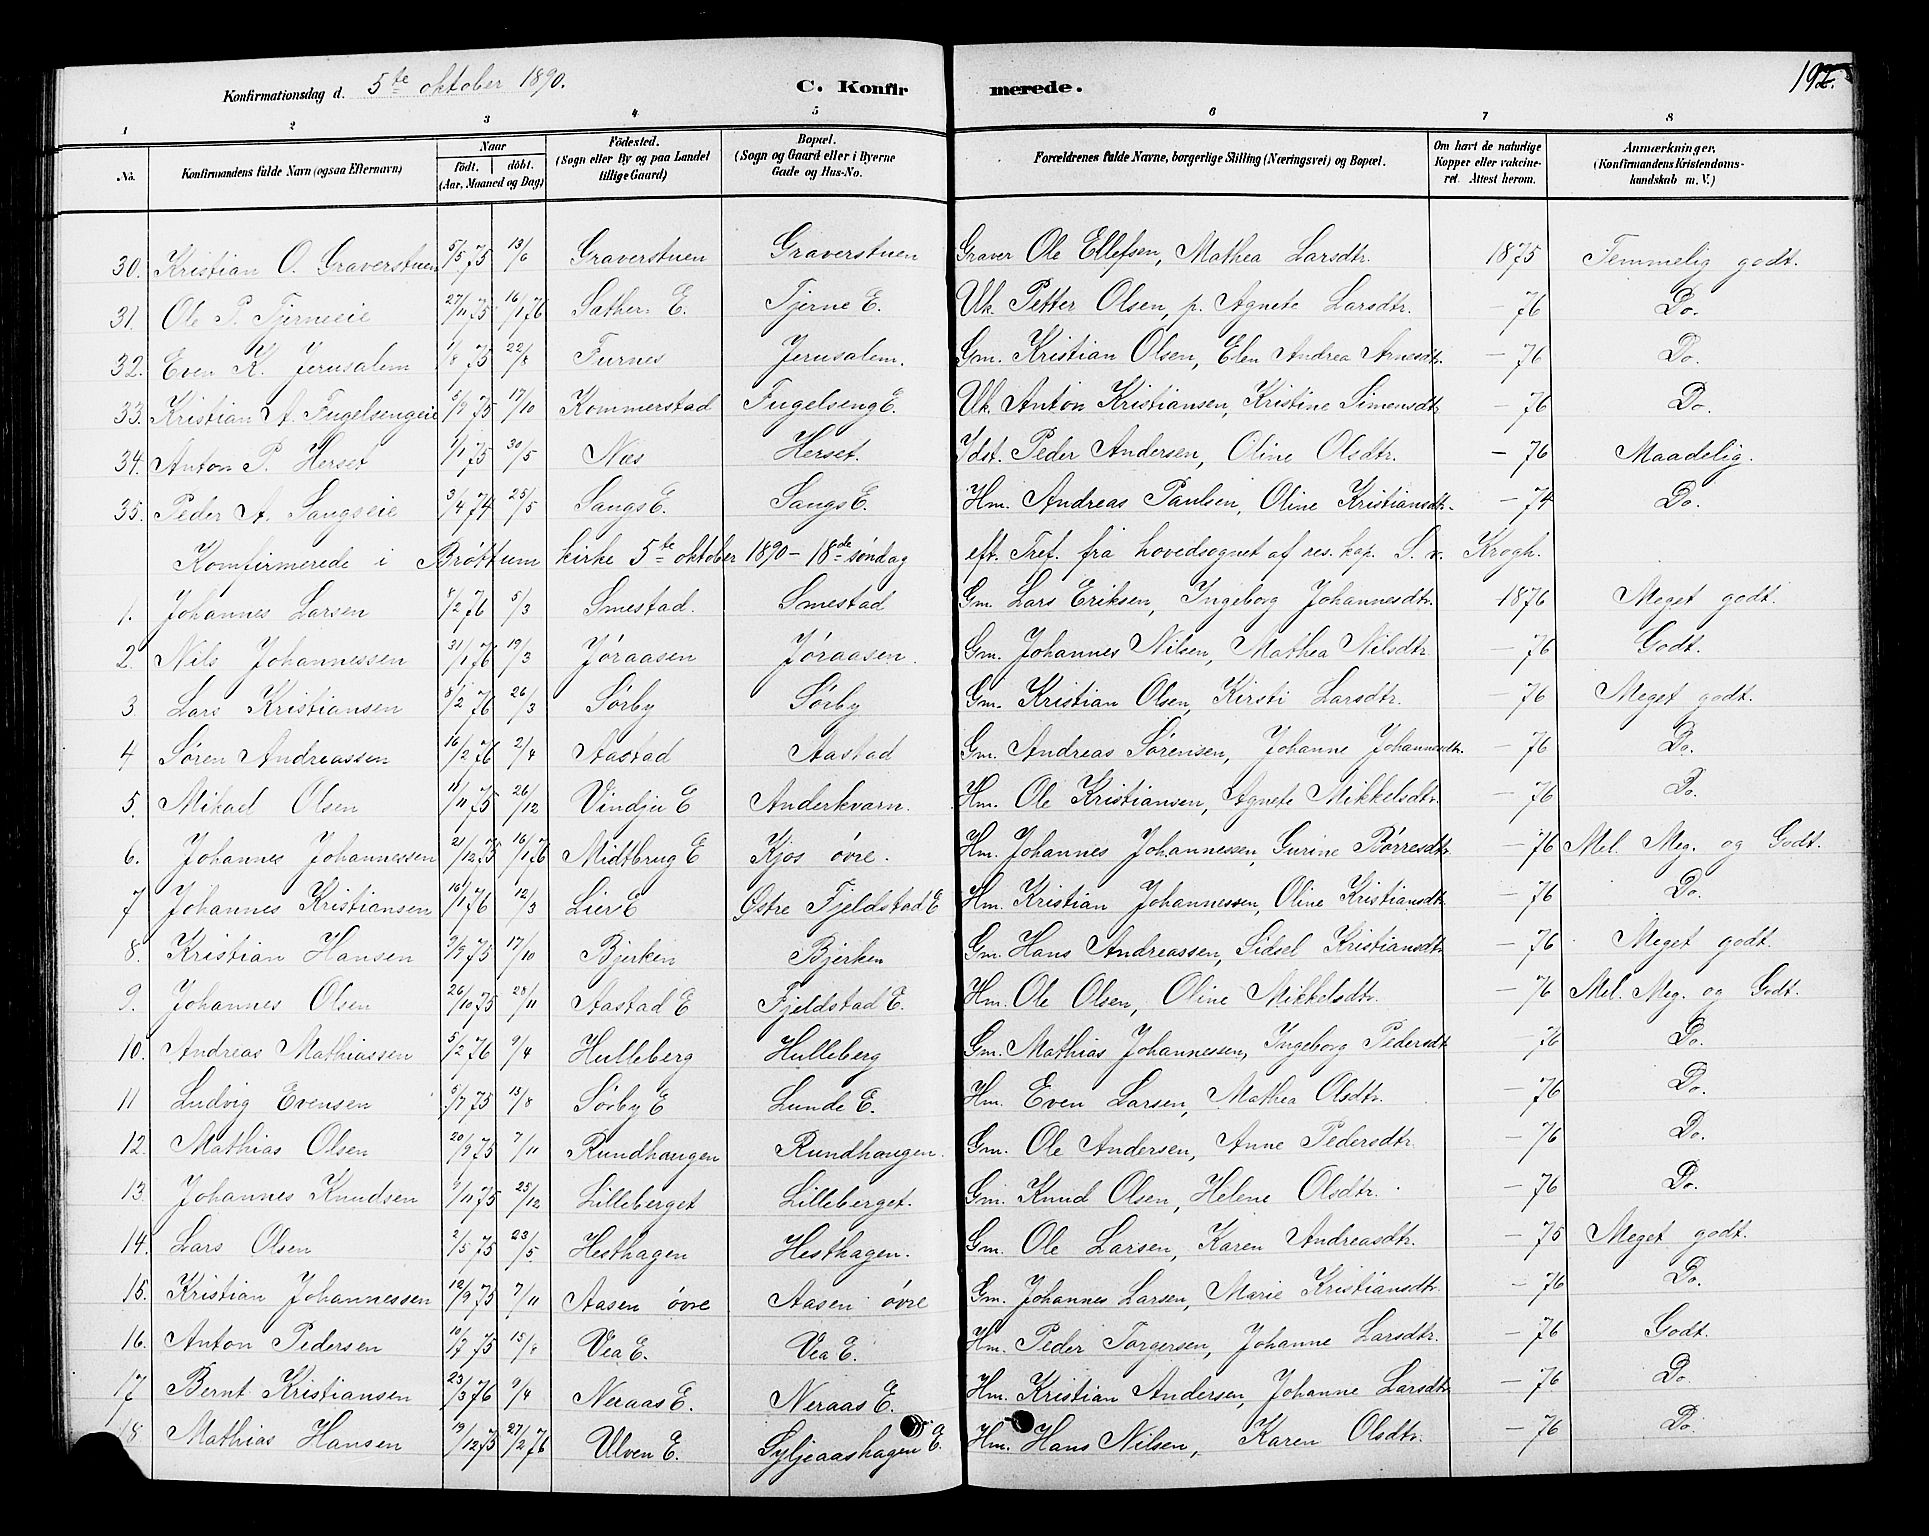 Konfirmationsdag d. 5te oktober 1890. C. Konfirmerede. 192.
1 2 3 4 5 6 7 8
No. Konfirmandens fulde Navn (ogsaa Efternavn) Naar födt. döbt. (Aar, Maaned og Dag) Födested. (Sogn eller By og paa Landet tillige Gaard) Bopæl. (Sogn og Gaard eller i Byerne Gade og Hus-No. Forældrenes fulde Navne, borgerlige Stilling (Næringsvei) og Bopæl. Om havt de naturlige Kopper eller vakcineret. Attest herom. Anmærkninger. (Konfirmandens Kristendomskundskab m. V.)
30. Kristian O. Graverstuen 5/5 75 13/6 Graverstuen Graverstuen Graver Ole Ellefsen, Mathea Larsdtr. 1875 Temmelig godt.
31. Ole P. Tjerneeie 27/11 75 16/1 76 Sathern E. Tjerne E. Uk. Petter Olsen, p. Agnete Larsdtr. — 76 Do.
32. Even K. Jerusalem 1/8 75 22/8 Furnes Jerusalem. Gm. Kristian Olsen, Elen Andrea Arnesdtr. — 76 Do.
33. Kristian A. Fugelsengeie 5/9 75 17/10 Kommerstad Fugelseng E. Uk. Anton Kristiansen, Kristine Simensdtr. — 76 Do.
34. Anton P. Herset 1/1 75 30/5 Næs Herset. Idst. Peder Andersen, Oline Olsdtr. — 76 Maadelig.
35. Peder A. Sangseie 3/4 74 25/5 Sangs E. Sangs E. Hm. Andreas Paulsen, Oline Kristiansdtr. — 74 Do.
Komfirmerede i Brøttum kirke 5te oktober 1890 – 18de søndag eft. Tref. fra hovedsognet af res. kap. S. v. Krogh.
1. Johannes Larsen 8/2 76 5/3 Smestad. Smestad Gm. Lars Eriksen, Ingeborg Johannesdtr. 1876 Meget godt.
2. Nils Johannessen 31/1 76 19/3 Jøraasen Jøraasen. Gm. Johannes Nilsen, Mathea Nilsdtr. — 76 Godt.
3 Lars Kristiansen 8/2 76 26/3 Sørby Sørby Gm. Kristian Olsen, Kirsti Larsdtr. — 76 Meget godt.
4 Søren Andreassen 16/2 76 2/4 Aastad Aastad Gm. Andreas Sørensen, Johanne Johannesdtr. — 76 Do.
5. Mikael Olsen 11/11 75 26/12 Vindju E Anderkvarn. Hm. Ole Kristiansen, Agnete Mikkelsdtr. — 76 Do.
6. Johannes Johannessen 21/12 75 16/1 76 Midtbrug E Kjos øvre. Hm. Johannes Johannessen, Gurine Børresdtr. — 76 Mel. Meg. og Godt.
7 Johannes Kristiansen 16/1 76 12/3 Lier E Østre Fjeldstad E Hm. Kristian Johannessen, Oline Kristiansdtr. — 76 Do.
8. Kristian Hansen 9/9 75 17/10 Bjerken Bjerken Gm. Hans Andreassen, Sidsel Kristiansdtr — 76 Meget godt.
9. Johannes Olsen 26/10 75 28/11 Aastad E Fjeldstad E. Hm. Ole Olsen, Oline Mikkelsdtr. — 76 Mel. Meg. og Godt.
10. Andreas Mathiassen 5/2 76 9/4 Hulleberg Hulleberg Gm. Mathias Johannessen, Ingeborg Pedersdtr — 76 Do.
11 Ludvig Evensen 5/7 75 15/8 Sørby E Lunde E. Hm. Even Larsen, Mathea Olsdtr. — 76 Do.
12. Mathias Olsen 20/9 75 7/11 Rundhaugen Rundhaugen. Gm. Ole Andersen, Anne Pedersdtr. — 76 Do.
13. Johannes Knudsen 9/11 75 25/12 Lilleberget Lilleberget. Gm. Knud Olsen, Helene Olsdtr. — 76 Do.
14. Lars Olsen 2/5 75 23/5. Hesthagen Hesthagen. Gm. Ole Larsen, Karen Andreasdtr. — 75 Meget godt.
15. Kristian Johannessen 12/9 75 7/11 Aasen øvre Aasen øvre Gm. Johannes Larsen, Marie Kristiansdtr. — 76 Do.
16. Anton Pedersen 10/7 75 15/8 Vea E. Vea E. Hm. Peder Torgersen, Johanne Larsdtr. — 76 Godt.
17 Bernt Kristiansen 23/3 76 9/4 Neraas E. Neraas E. Hm. Kristian Andersen, Johanne Larsdtr — 76 Do.
18. Mathias Hansen 19/12 75 27/2 76 Ulven E. Syljeaashagen E. Hm. Hans Nilsen, Karen Olsdtr. — 76 Do.